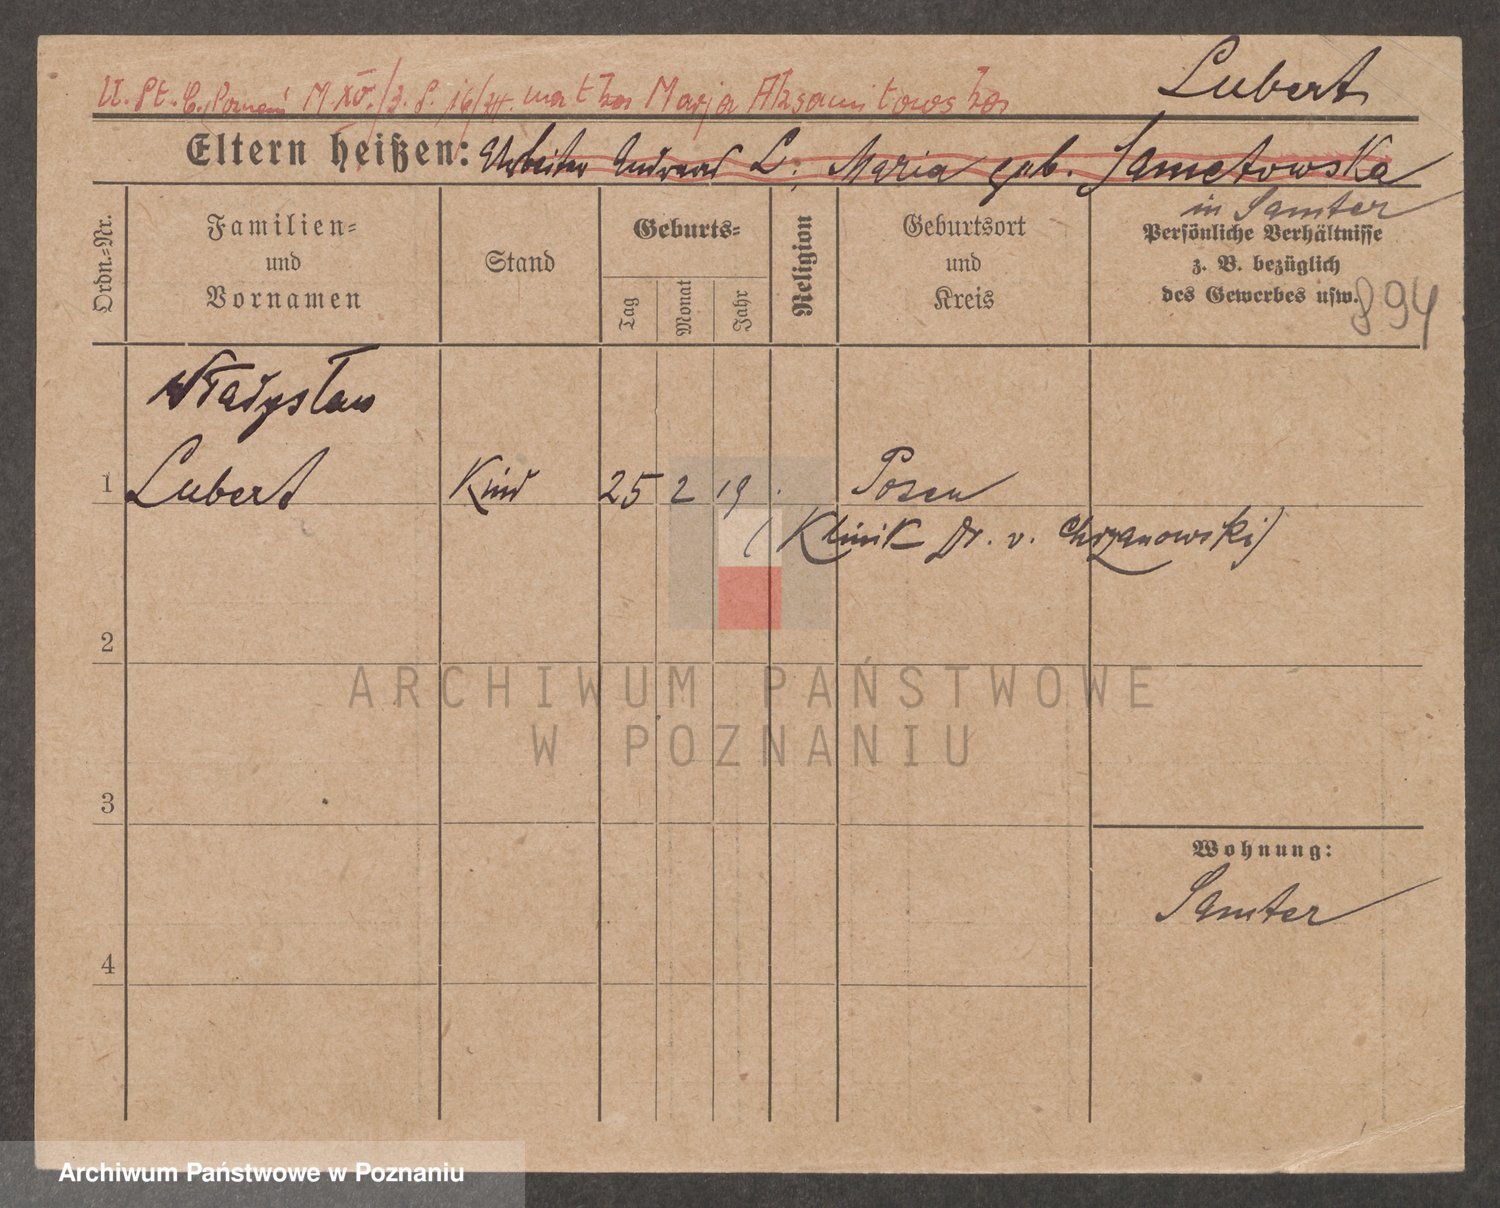 Lubert
U. St. C. Poznań M. XV./3. S. 16/24. matka Marja Aksamitowska
Eltern heißen: Arbeiter Andreas L; Maria geb. Sametowska
in Samter
Ordn.-Nr.
Familien-
und
Vornamen
Stand
Geburts-
Tag
Monat
Jahr
Religion
Geburtsort
und
Kreis
Persönliche Verhältnisse
z. B. bezüglich
des Gewerbes usw.
894
Władysław
1 Lubert Kind 25 2 19 Posen
(Klinik Dr. v. Chrzanowski)
2
ARCHIWUM PAŃSTWOWE
W POZNANIU
3
Wohnung:
Samter
4
Archiwum Państwowe w Poznaniu